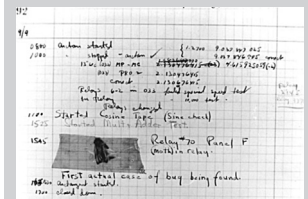 9/9
0800 Antan started
1000 " stopped - antan ✓
13"uc (032) MP-MC
033 PRO 2 2.130476415
correct 2.130676415
Relays 6-2 in 033 failed special speed test
in relay
Relays changed
1100 Started Cosine Tape (Sine check)
1525 Started Multy Adder Test
1545 Relay #70 Panel F
(moth) in relay.
First actual case of bug being found.
antangent started.
1700 closed down.